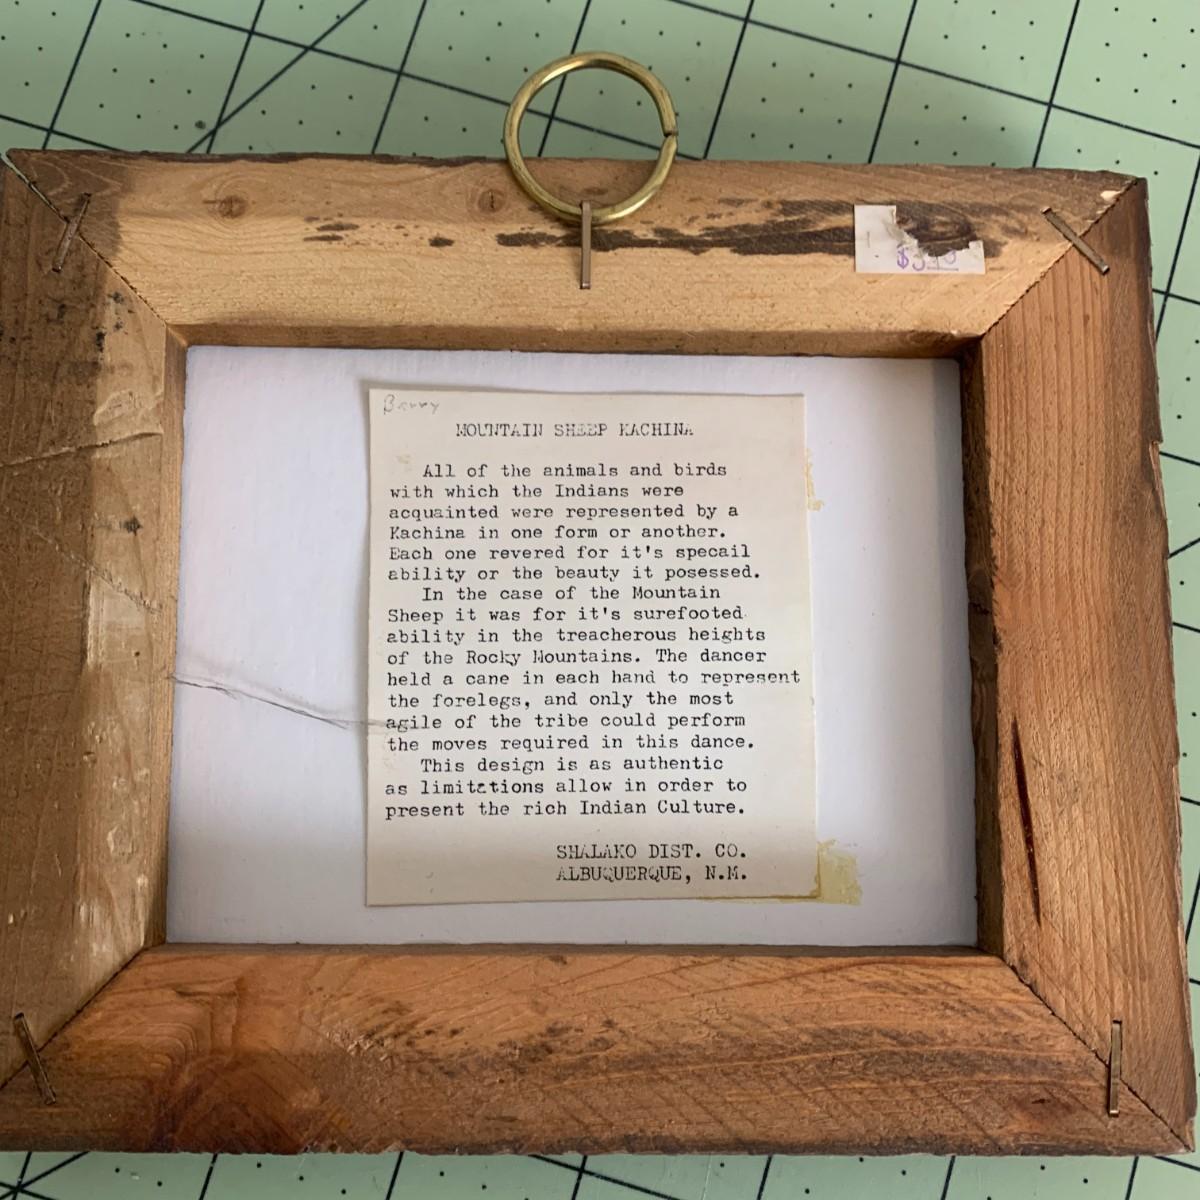 Berry
MOUNTAIN SHEEP KACHINA
All of the animals and birds
with which the Indians were
acquainted were represented by a
Kachina in one form or another.
Each one revered for it's specail
ability or the beauty it posessed.
In the case of the Mountain
Sheep it was for it's surefooted
ability in the treacherous heights
of the Rocky Mountains. The dancer
held a cane in each hand to represent
the forelegs, and only the most
agile of the tribe could perform
the moves required in this dance.
This design is as authentic
as limitations allow in order to
present the rich Indian Culture.
SHALAKO DIST. CO.
ALBUQUERQUE, N.M.